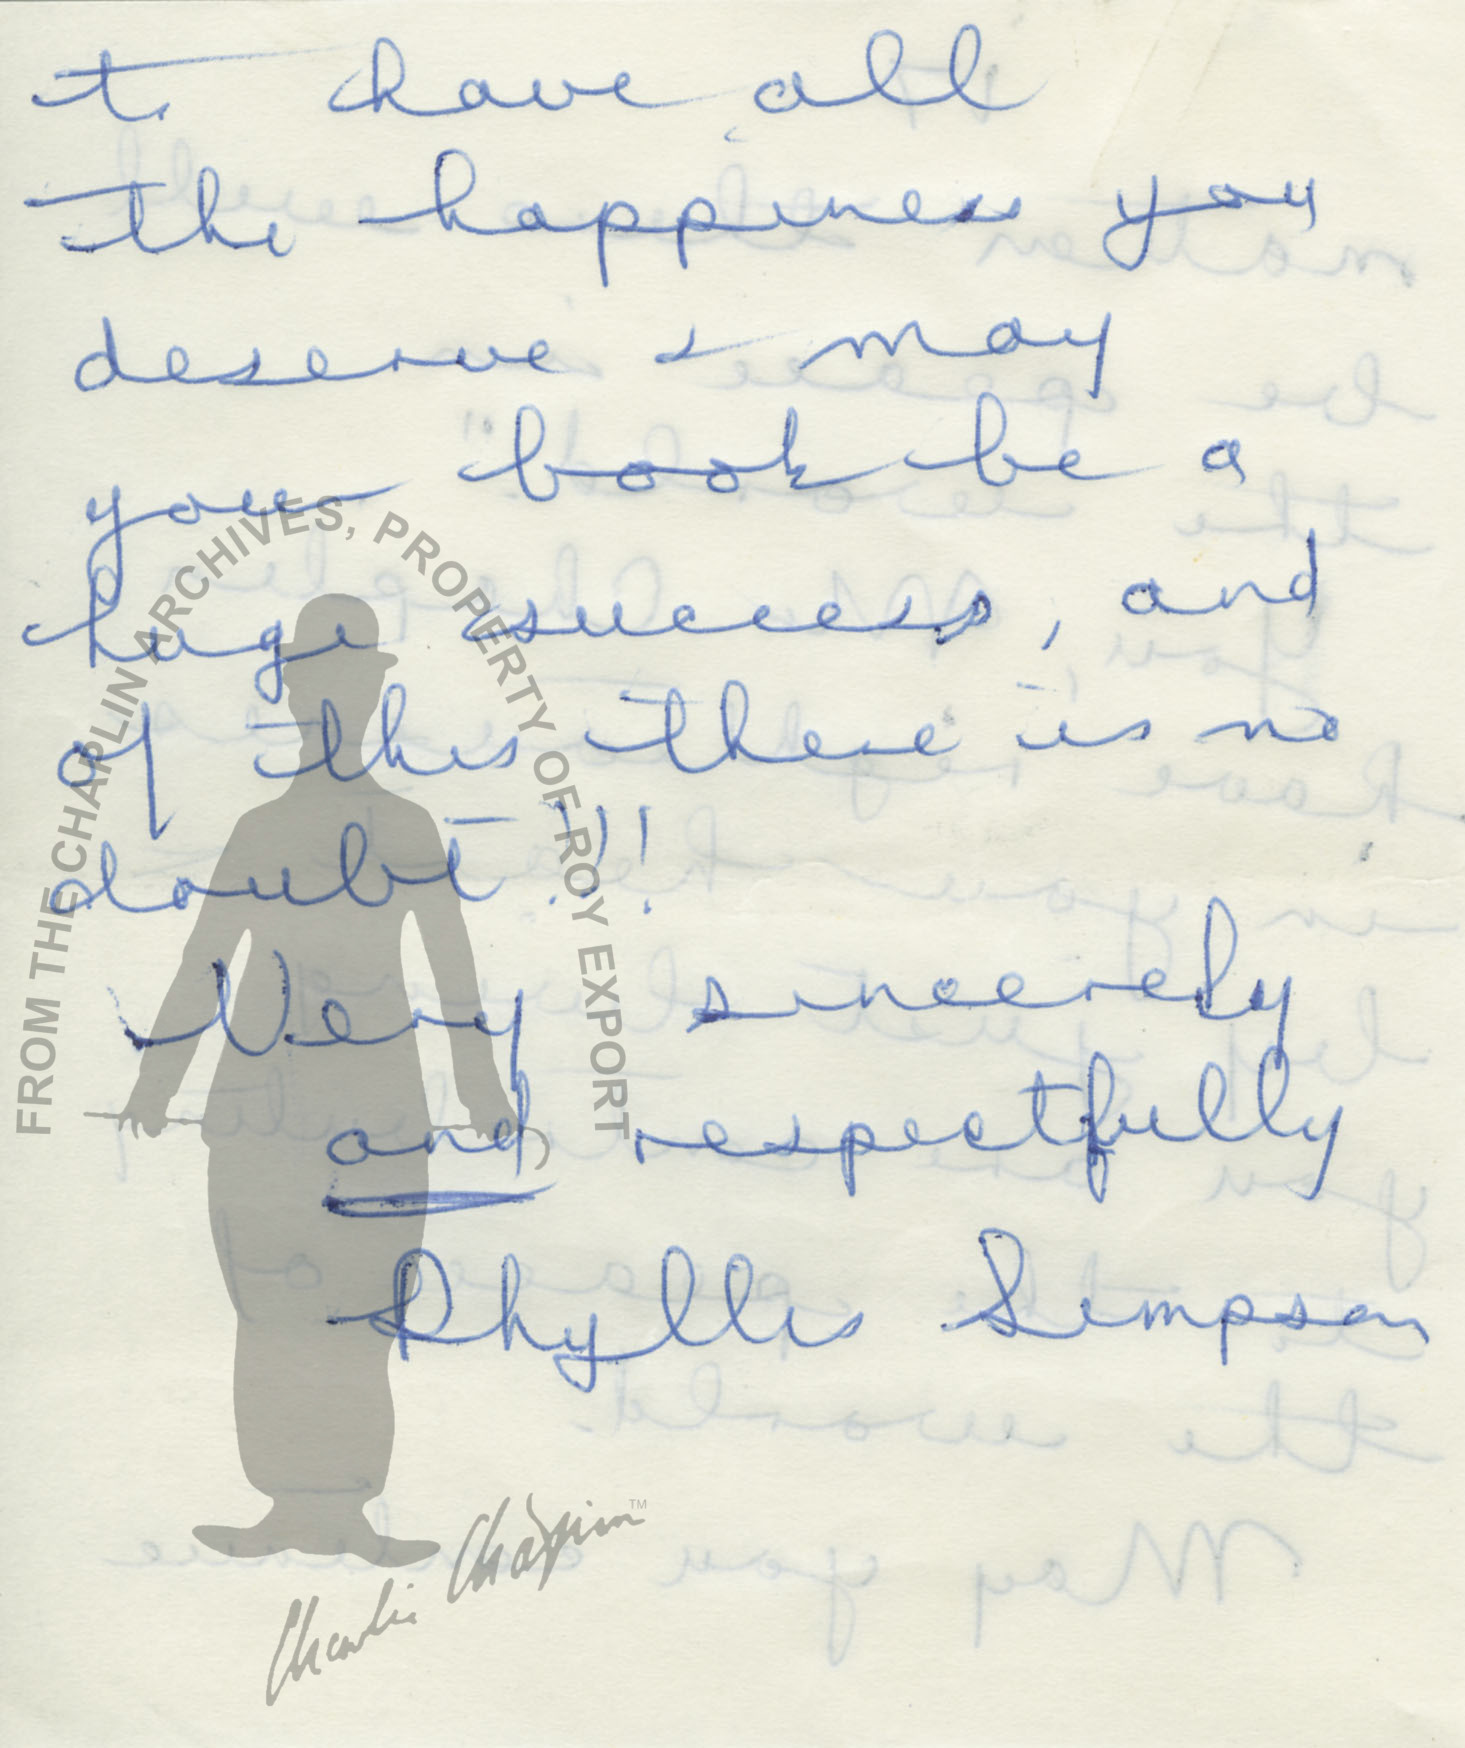 to have all
the happiness you
deserve & may
your book be a
huge success, and
of this there is no
doubt!!!
Very sincerely
and respectfully
Phyllis Simpson
FROM THE CHAPLIN ARCHIVES, PROPERTY OF ROY EXPORT
Charlie Chaplin™